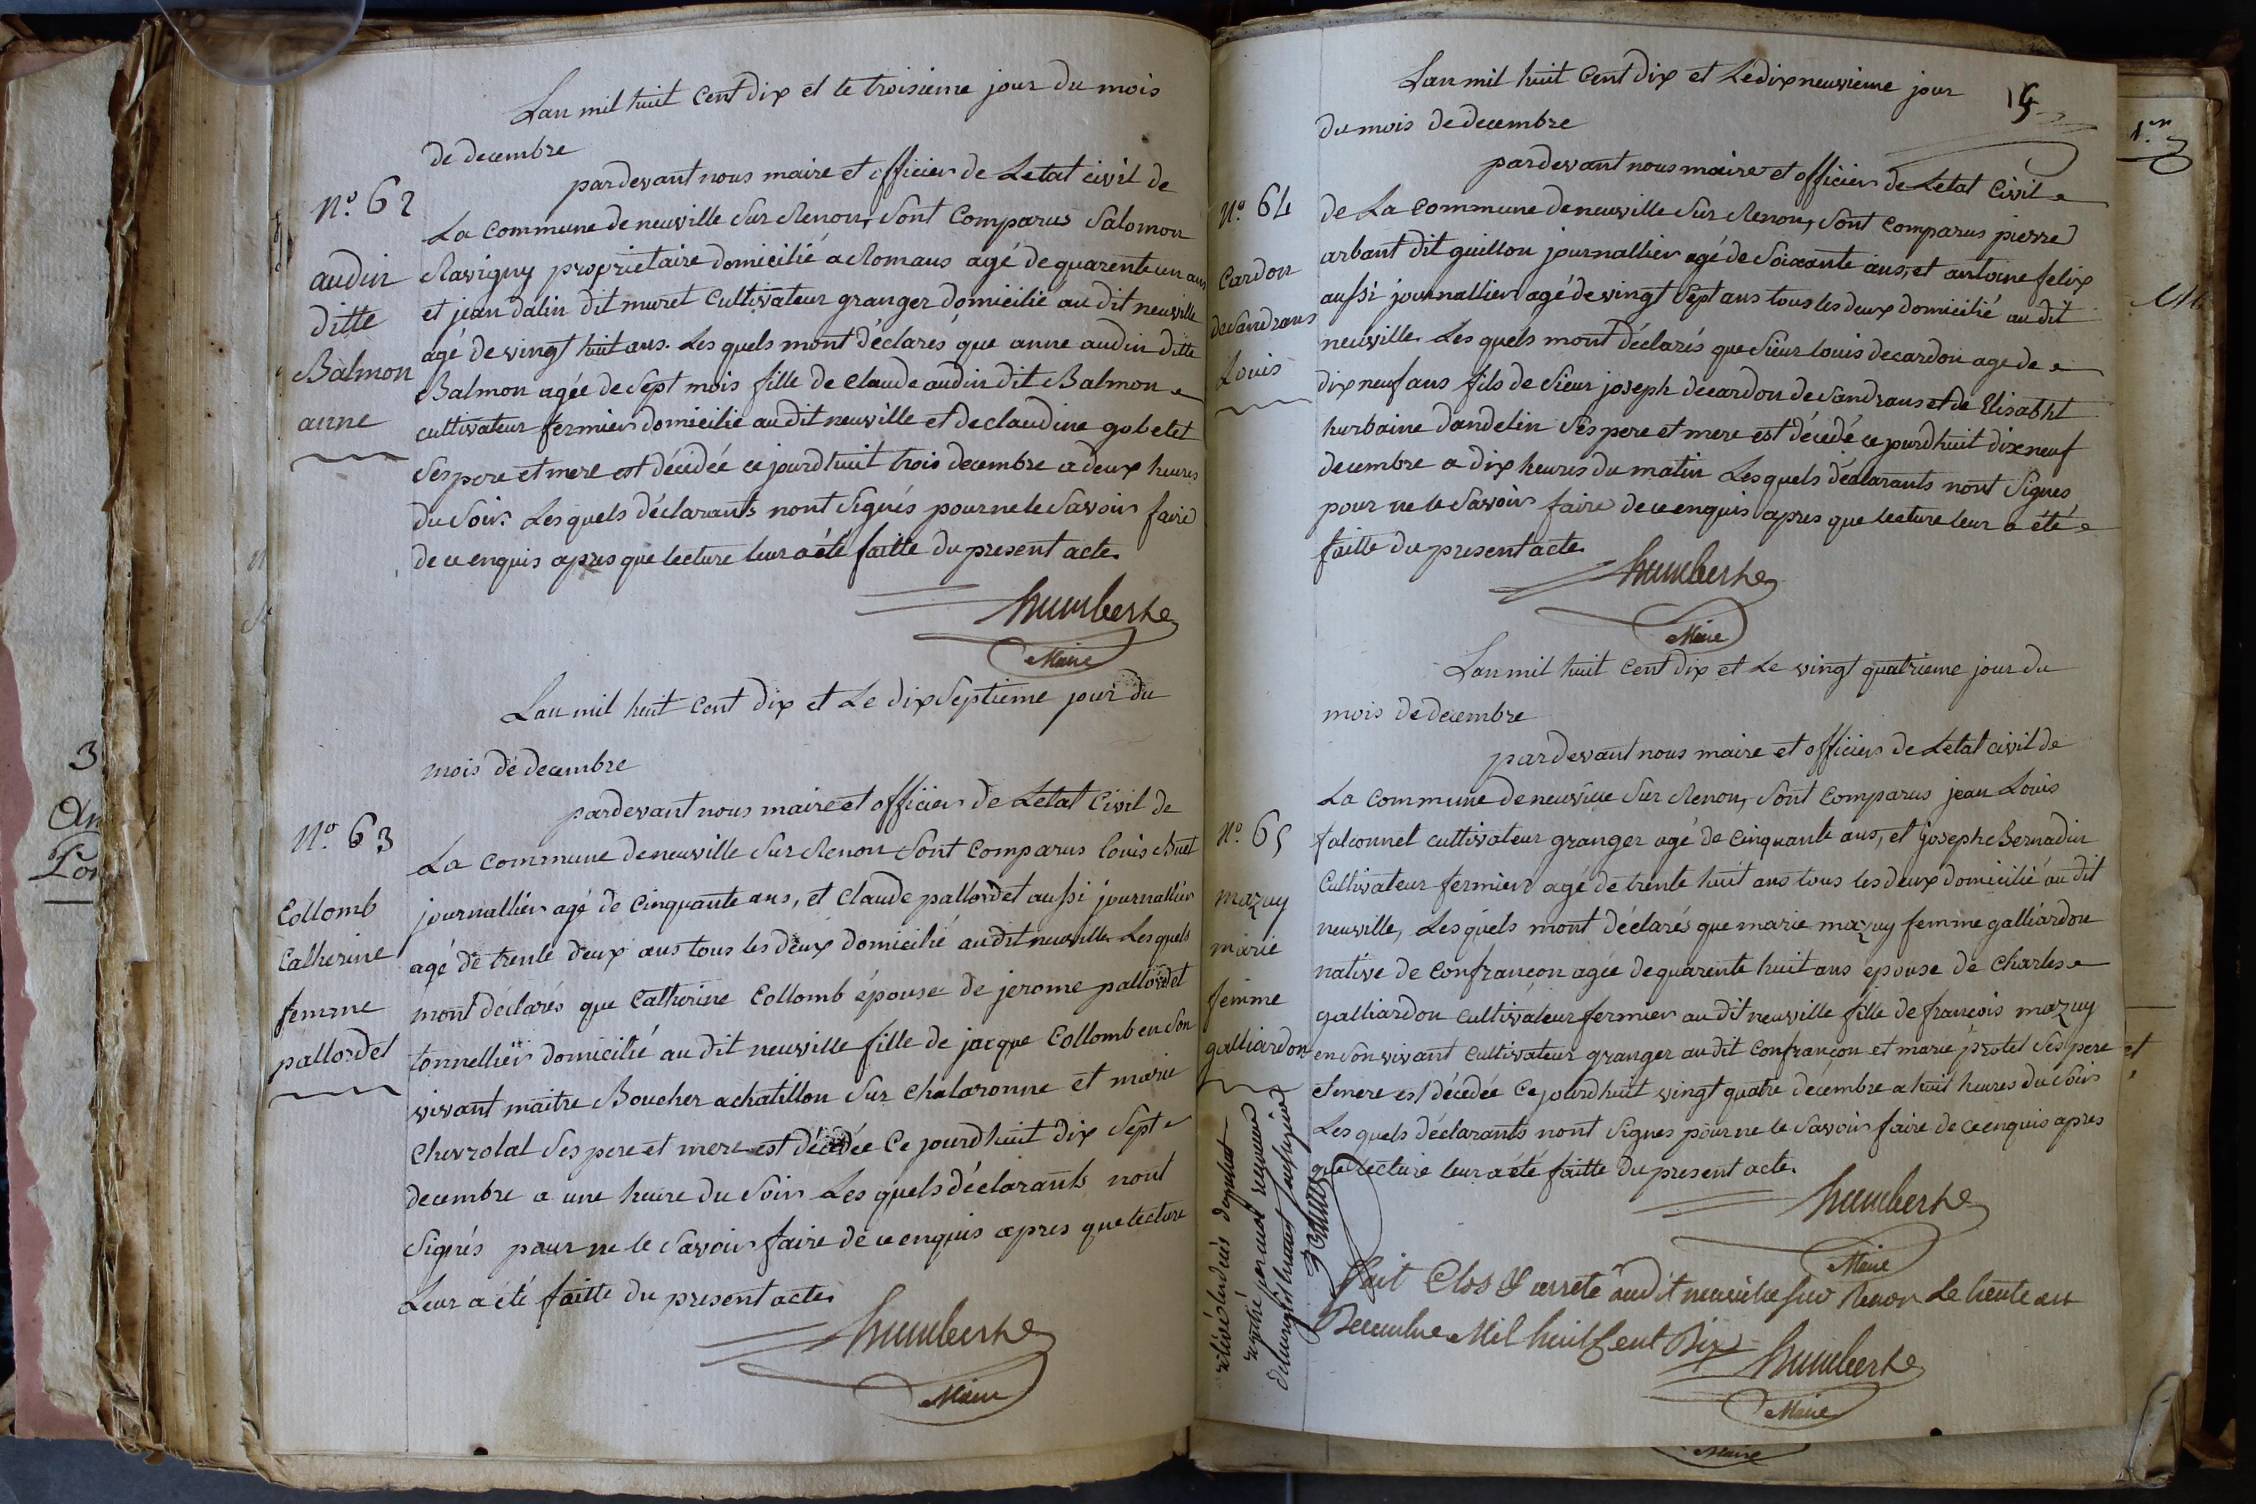 Lan mil huit Cent dix et le troisieme jour du mois
de decembre
pardevant nous maire et officier de Letat civil de
N.o 62
La Commune de neuville Sur Renon, Sont Comparus Salomon
audin
Ravigny proprietaire domicilié a Romans agé de quarente un ans
ditte
et jean dalin dit muret Cultivateur granger domicilié au dit neuville
agé de vingt huit ans. Les quels mont déclarés que anne audin ditte
Balmon
Balmon agée de Sept mois fille de Claude audin dit Balmon
anne
cultivateur fermier domicilié au dit neuville et de claudine gobelet
Ses pere et mere est décédée ce jourdhuit trois decembre a deux heures
du Soir. Les quels déclarants nont Signés pour ne le Savoir faire
de ce enquis apres que lecture leur a été faitte du present acte.
humbert
Maire
Lan mil huit Cent dix et Le dix Septieme jour du
mois de decembre
pardevant nous maire et officier de Letat Civil de
N.o 63
La Commune de neuville Sur Renon Sont Comparus louis Buet
Collomb
journallier agé de Cinquante ans, et Claude pallordet aussi journallier
Catherine
agé de trente deux ans tous les deux domicilié au dit neuville Les quels
femme
mont déclarés que Catherine Collomb épouse de jerome pallordet
pallordet
tonnellier domicilié au dit neuville fille de jacque Collomb en Son
vivant maitre Boucher a chatillon Sur Chalaronne et marie
Chevrolat Ses pere et mere est décédée Ce jourdhuit dix Sept
decembre a une heure du Soir Les quels déclarants nont
Signés pour ne le Savoir faire de ce enquis apres que lecture
Leur a été faitte du present acte.
humbert
Maire
Lan mil huit Cent dix et Le dix neuvieme jour
du mois de decembre
pardevant nous maire et officier de Letat Civil
N.o 64
de La Commune de neuville Sur Renon, Sont Comparus pierre
arbant dit guillon journallier agé de Soixante ans, et antoine felix
Cardon
aussi journallier agé de vingt Sept ans tous les deux domicilié au dit
de Sandrans
neuville. Les quels mont déclarés que Sieur louis decardon age de
Louis
dix neuf ans fils de Sieur joseph decardon de Sandrans et de Elisabht
hurbaine dandelin Ses pere et mere est décédé ce jourdhuit dix neuf
decembre a dix heures du matin Les quels déclarants nont Signés
pour ne le Savoir faire de ce enquis apres que lecture leur a été
faitte du present acte.
humbert
Maire
Lan mil huit Cent dix et Le vingt quatrieme jour du
mois de decembre
pardevant nous maire et officier de Letat civil de
La Commune de neuville Sur Renon, Sont Comparus jean Louis
N.o 65
falconnet cultivateur granger agé de Cinquante ans, et joseph Bernadin
Cultivateur fermier agé de trente huit ans tous les deux domicilié au dit
mazuy
neuville, Les quels mont déclarés que marie mazuy femme galliardon
marie
native de Confrançon agée de quarente huit ans epouse de Charles
femme
galliardon Cultivateur fermier au dit neuville fille de francois mazuy
galliardon
en Son vivant Cultivateur granger au dit Confrançon et marie protet Ses pere
et mere est décédée Ce jourdhuit vingt quatre décembre a huit heures du Soir
Les quels déclarants nont Signes pour ne le Savoir faire de ce enquis apres
que lecture leur a été faitte du present acte.
humbert
Maire
fait Clos & arrete audit neuville sur Renon Le trente un
Decembre Mil huit Cent Dix
humbert
Maire